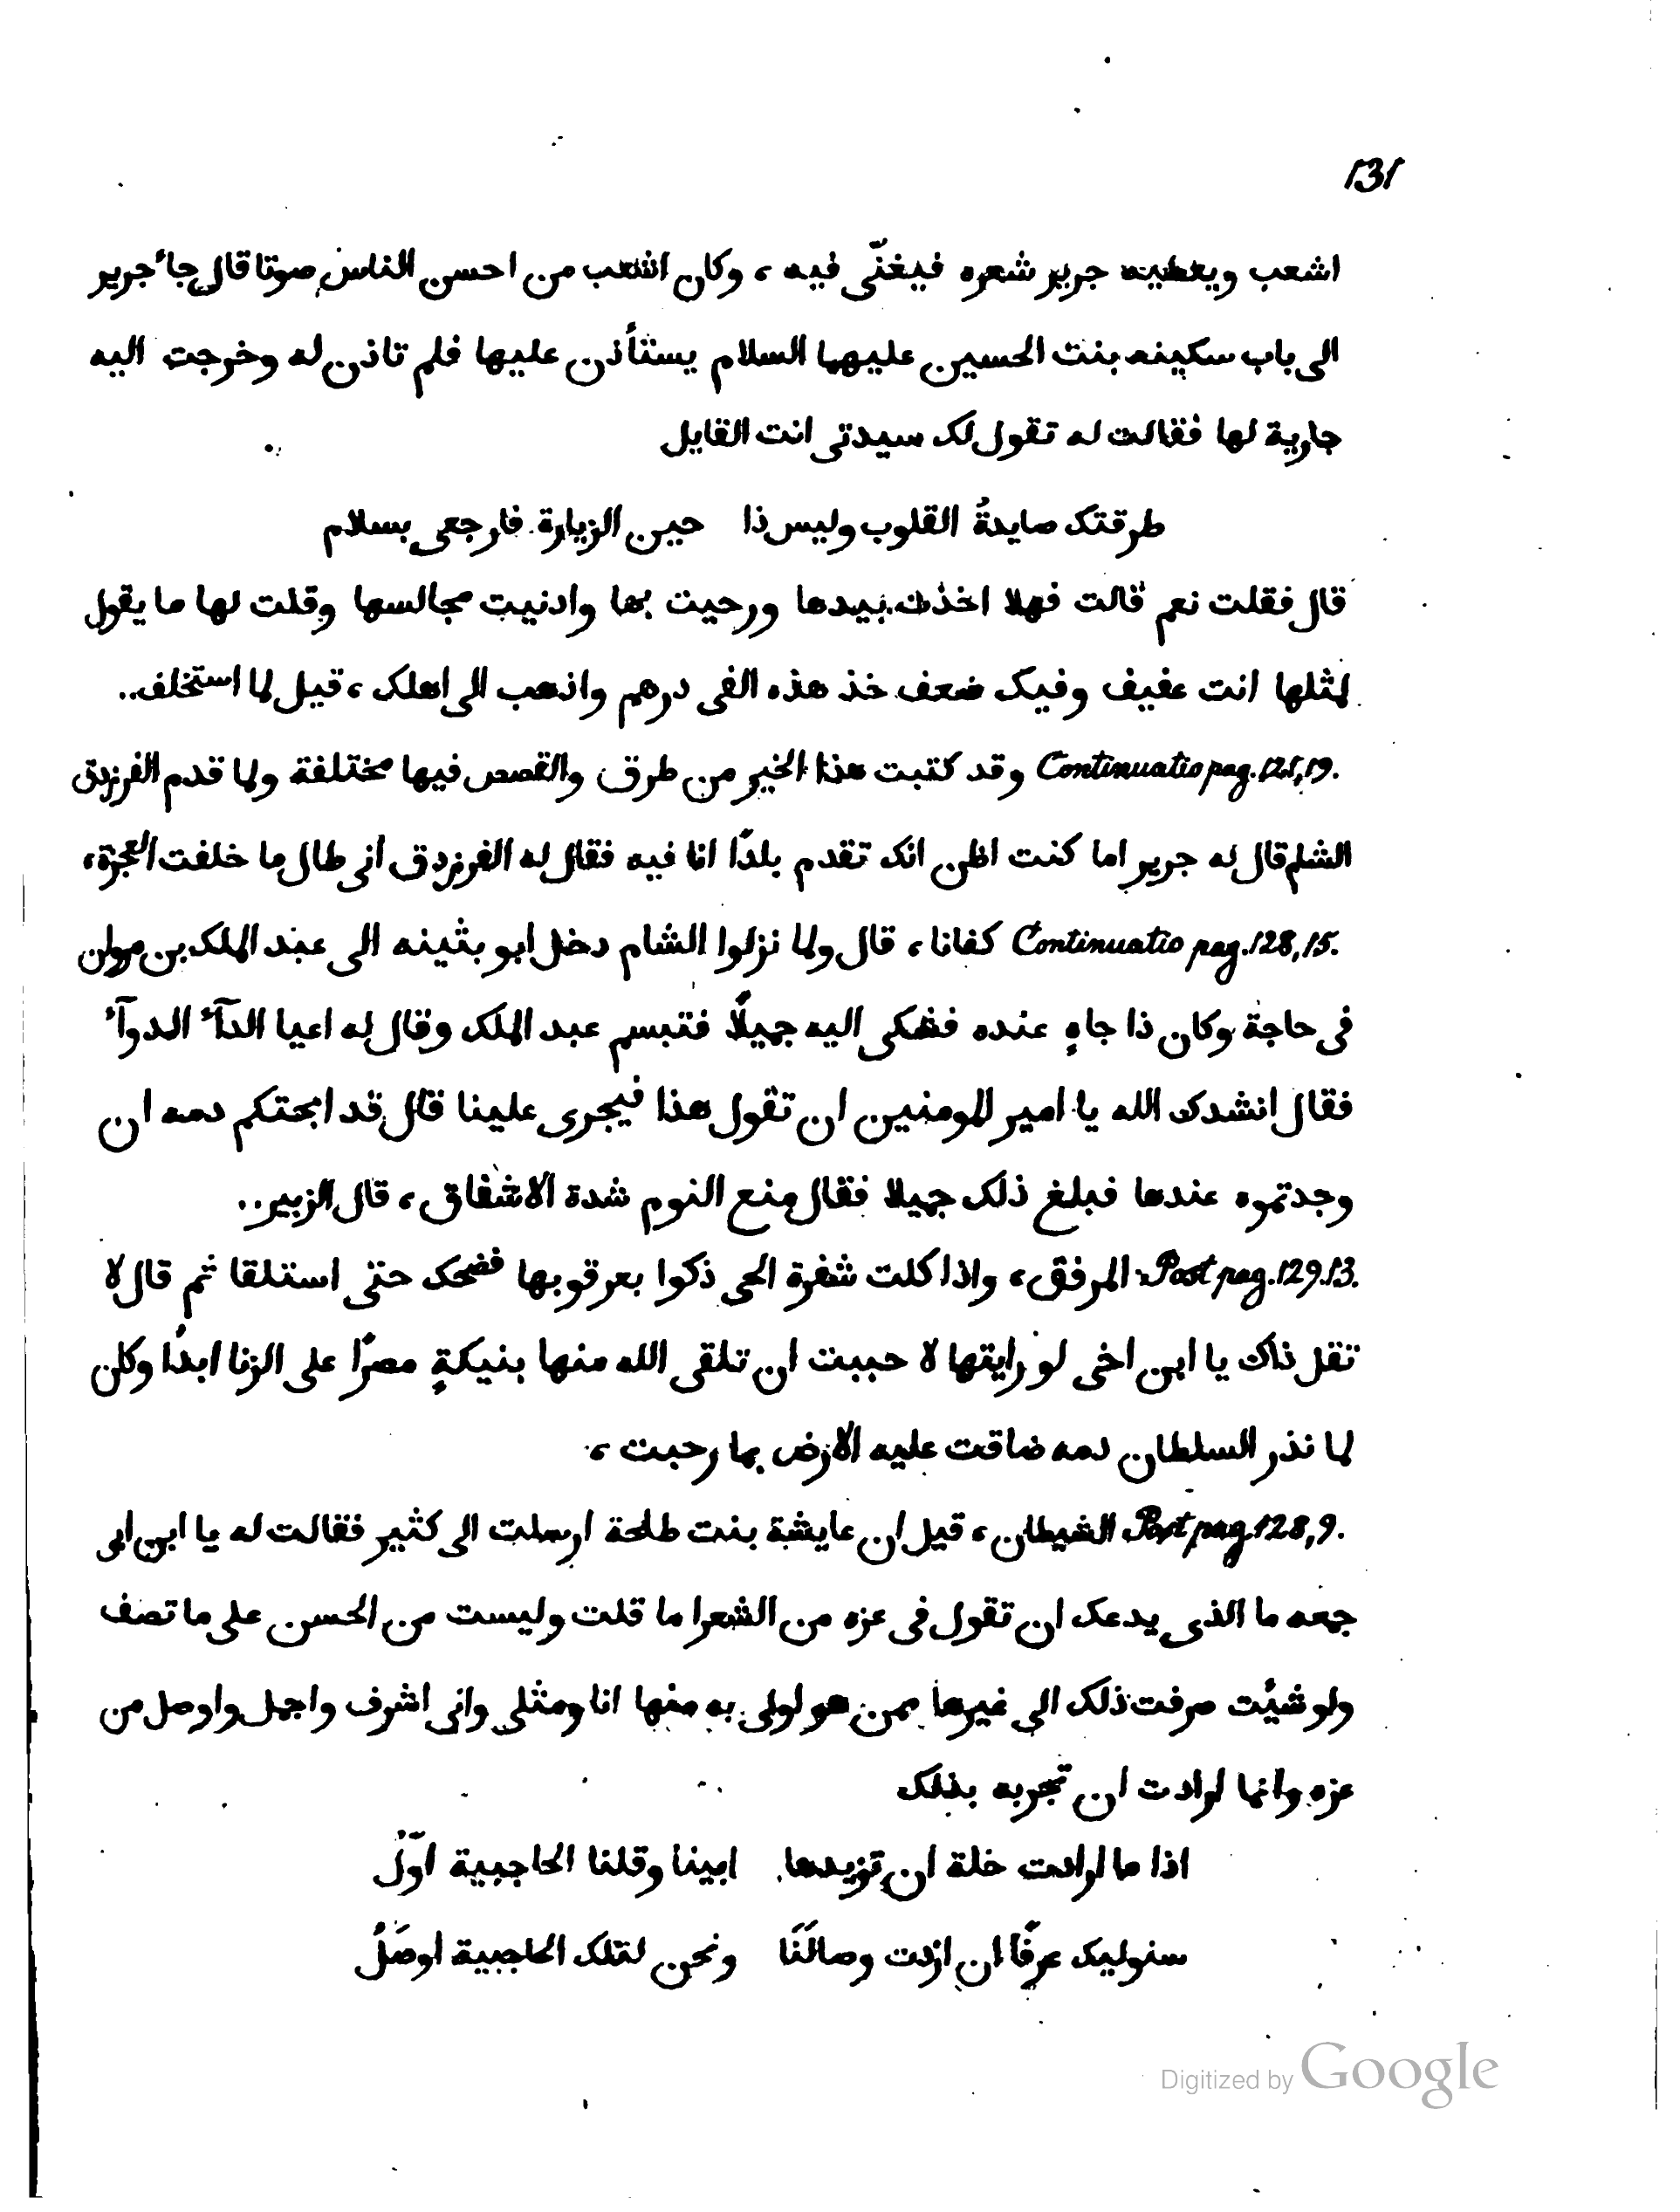 131
اشعب ويعطيه جرير شعره فيغنّى فيه ، وكان اشعب من احسن الناس صوتا قال جاء جرير
الى باب سكينه بنت الحسين عليهما السلام يستأذن عليها فلم تاذن له وخرجت اليه
جارية لها فقالت له تقول لك سيدتى انت القايل
طرقتك صايدةُ القلوب وليس ذا حين الزيارة فارجعى بسلام
قال فقلت نعم قالت فهلا اخذت بيدها ورحيت بها وادنيت مجالسها وقلت لها ما يقول
لمثلها انت عفيف وفيك ضعف خذ هذه الفى درهم واذهب الى اهلك ، قيل لما استخلف..
Continuatio pag. 125,19. وقد كتبت هذا الخبر من طرق والقصص فيها مختلفة ولما قدم الفرزدق
الشام قال له جرير اما كنت اظن انك تقدم بلدًا انا فيه فقال له الفرزدق انى طال ما خلفت العجزة ،
Continuatio pag. 128,15. كفانا ، قال ولما نزلوا الشام دخل ابو بثينه الى عبد الملك بن مروان
فى حاجة وكان ذا جاهٍ عنده فشكى اليه جميلًا فتبسم عبد الملك وقال له اعيا الدآء الدوآء
فقال انشدك الله يا امير المومنين ان تقول هذا فيجرى علينا قال قد ابحتكم دمه ان
وجدتموه عندها فبلغ ذلك جميلا فقال منع النوم شدة الاشفاق ، قال الزبير..
Post pag. 129.13. المرفق ، واذا كلت شفرة الحى ذكوا بعرقوبها فضحك حتى استلقا ثم قال لا
تقل ذاك يا ابن اخى لو رايتها لا حببت ان تلقى الله منها بنيكةٍ مصرًا على الزنا ابدًا وكان
لما نذر السلطان دمه ضاقت عليه الارض بما رحبت ،
Post pag. 128,9. الشيطان ، قيل ان عايشة بنت طلحة ارسلت الى كثير فقالت له يا ابن ابى
جعه ما الذى يدعك ان تقول فى عزه من الشعرا ما قلت وليست من الحسن على ما تصف
ولو شئت صرفت ذلك الى غيرها ممن هو اولى به منها انا ومثلى وانى اشرف واجمل واوصل من
عزه وانما ارادت ان تجربه بذلك
اذا ما ارادت خلة ان تزيدها ابينا وقلنا الحاجبية اوّلُ
سنوليك عرفًا ان اردت وصالَنَا ونحن لتلك الحاجبية اوصَلُ
Digitized by Google